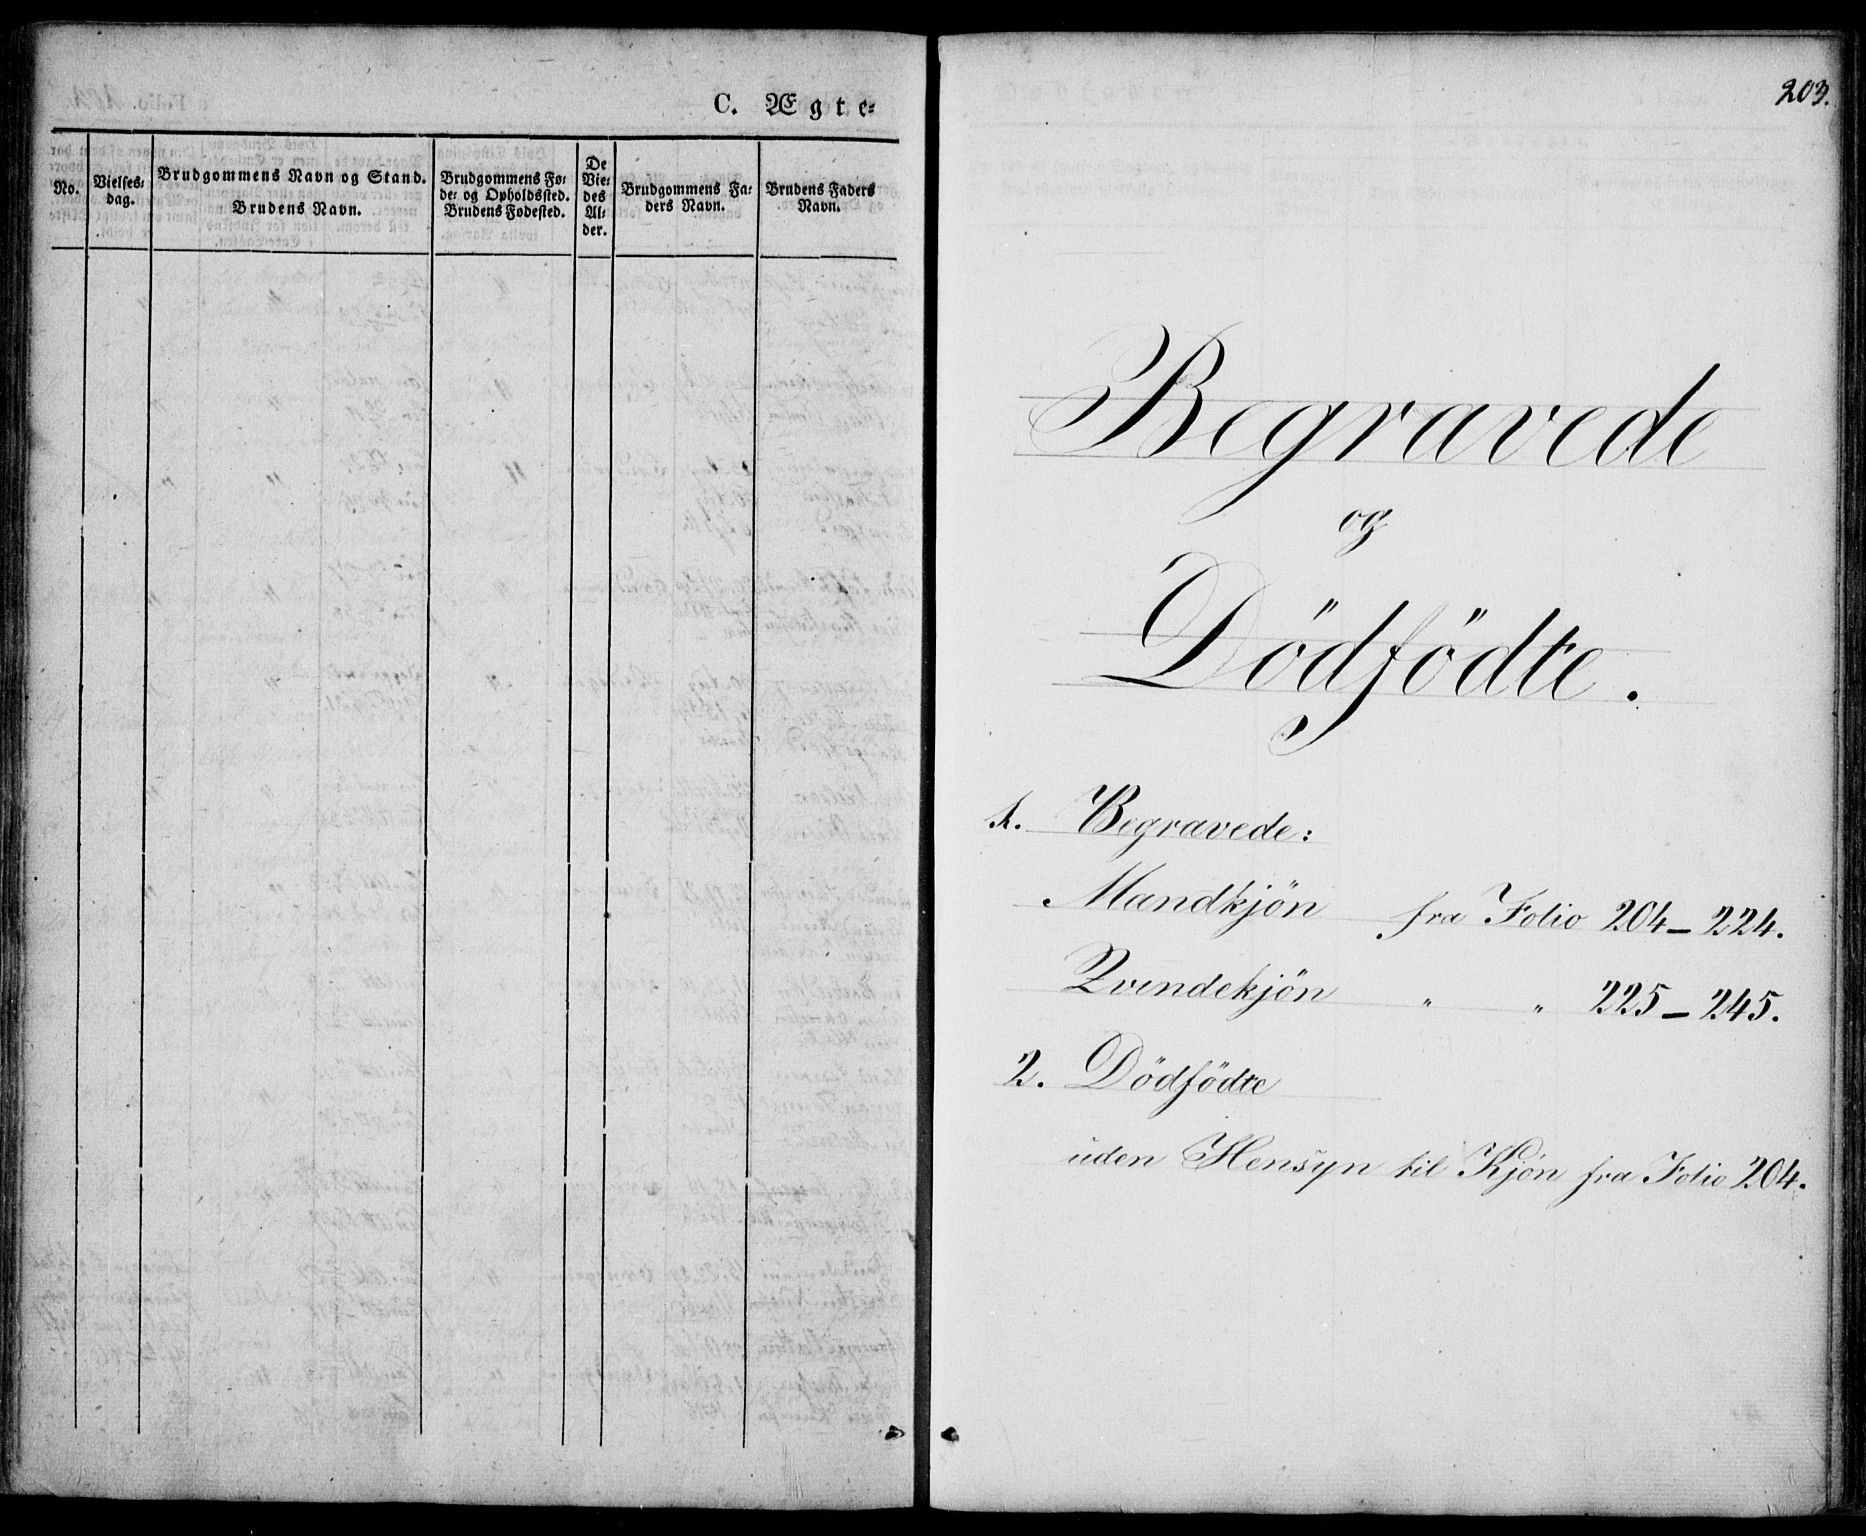 C. Ægte-
No.
Vielses-
dag.
Brudgommens Navn og Stand.
Brudens Navn.
Brudgommens Fø-
de- og Opholdssted.
Brudens Fødested.
De
Vie-
des
Al-
der.
Brudgommens Fa-
ders Navn.
Brudens Faders
Navn.
203.
Begravede
og
Dödfödte.
1. Begravede:
Mandkjön fra Folio 204-224.
Qvindekjön " " 225-245.
2. Dödfödte
uden Hensyn til Kjön fra Folio 204.